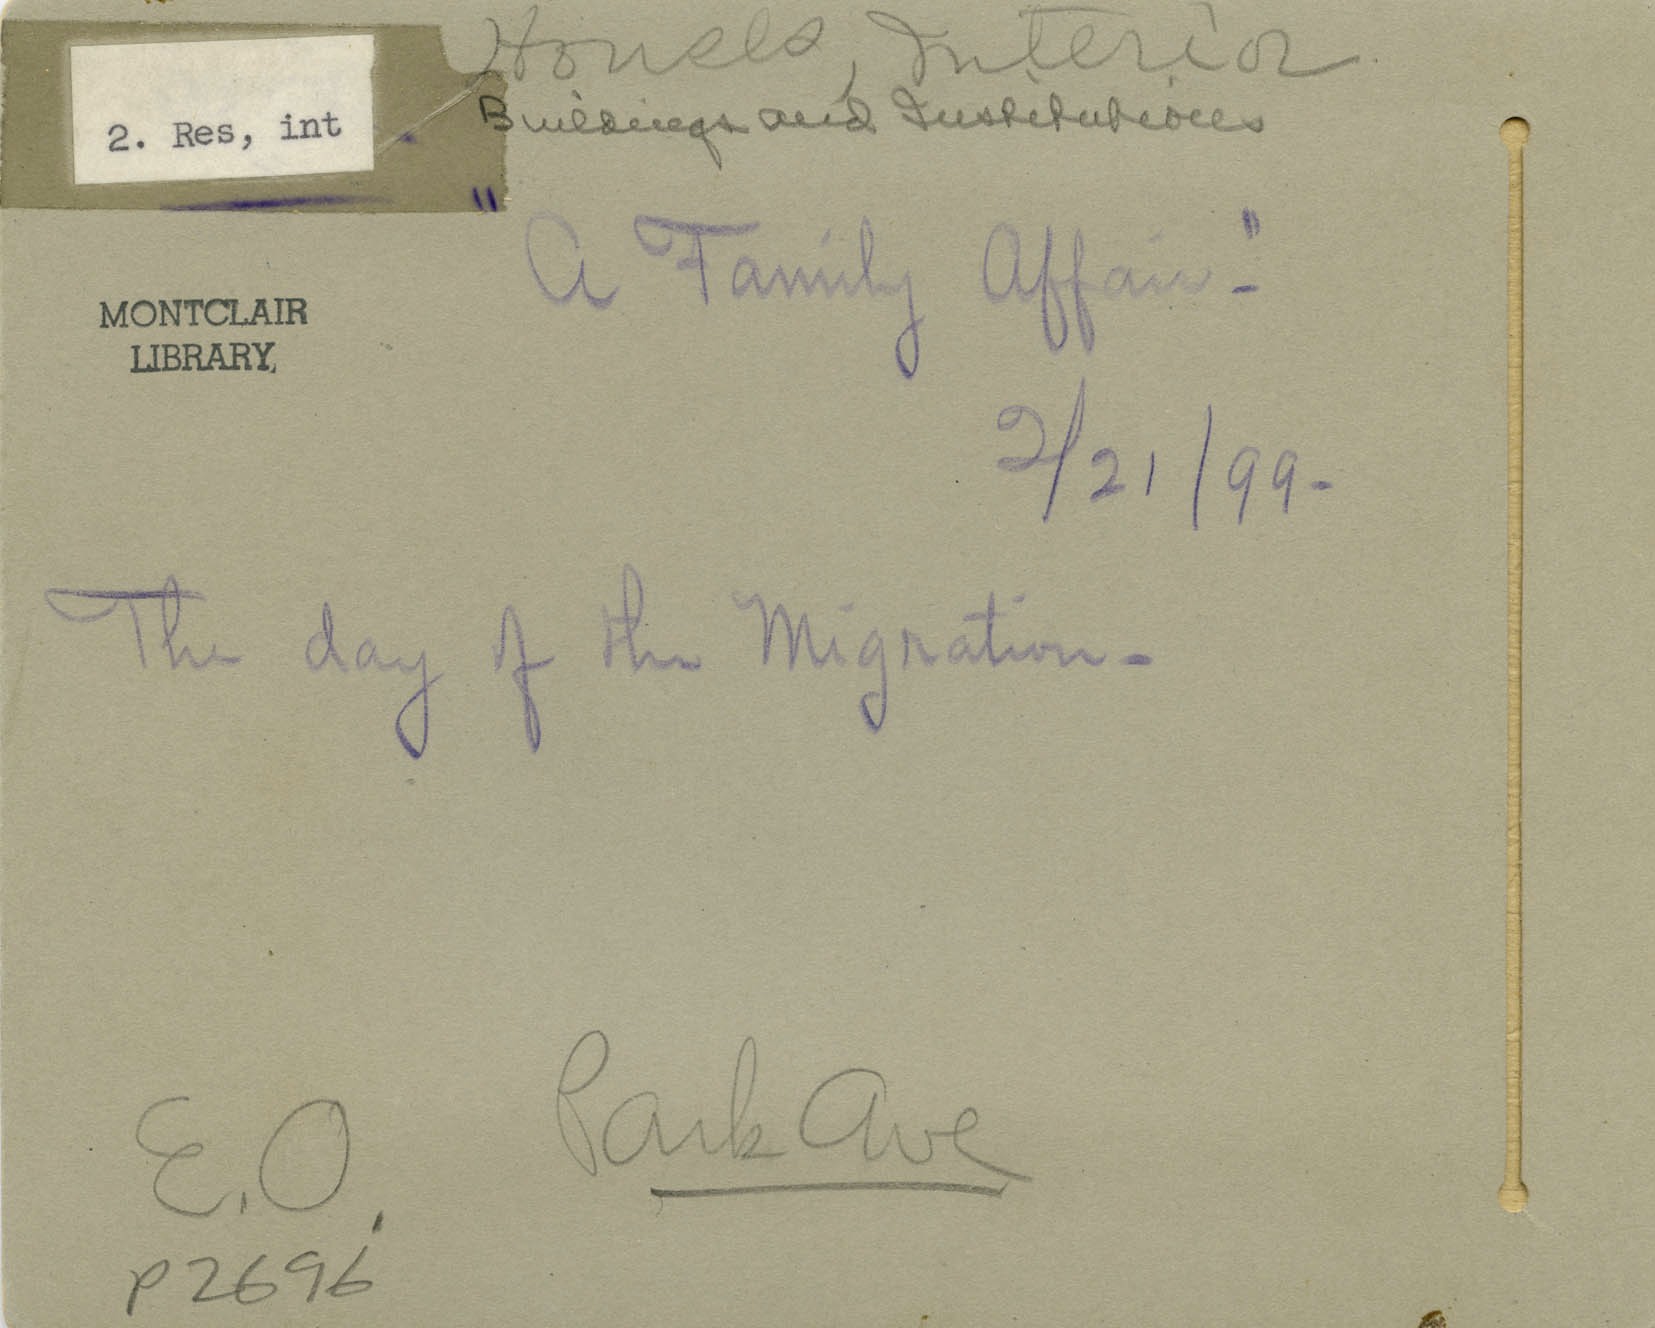 Houses, Interior
Buildings and Institutions
2. Res, int
"A Family Affair"-
MONTCLAIR
LIBRARY,
2/21/99-
The day of the Migration-
Park Ave
E.O.
P2696